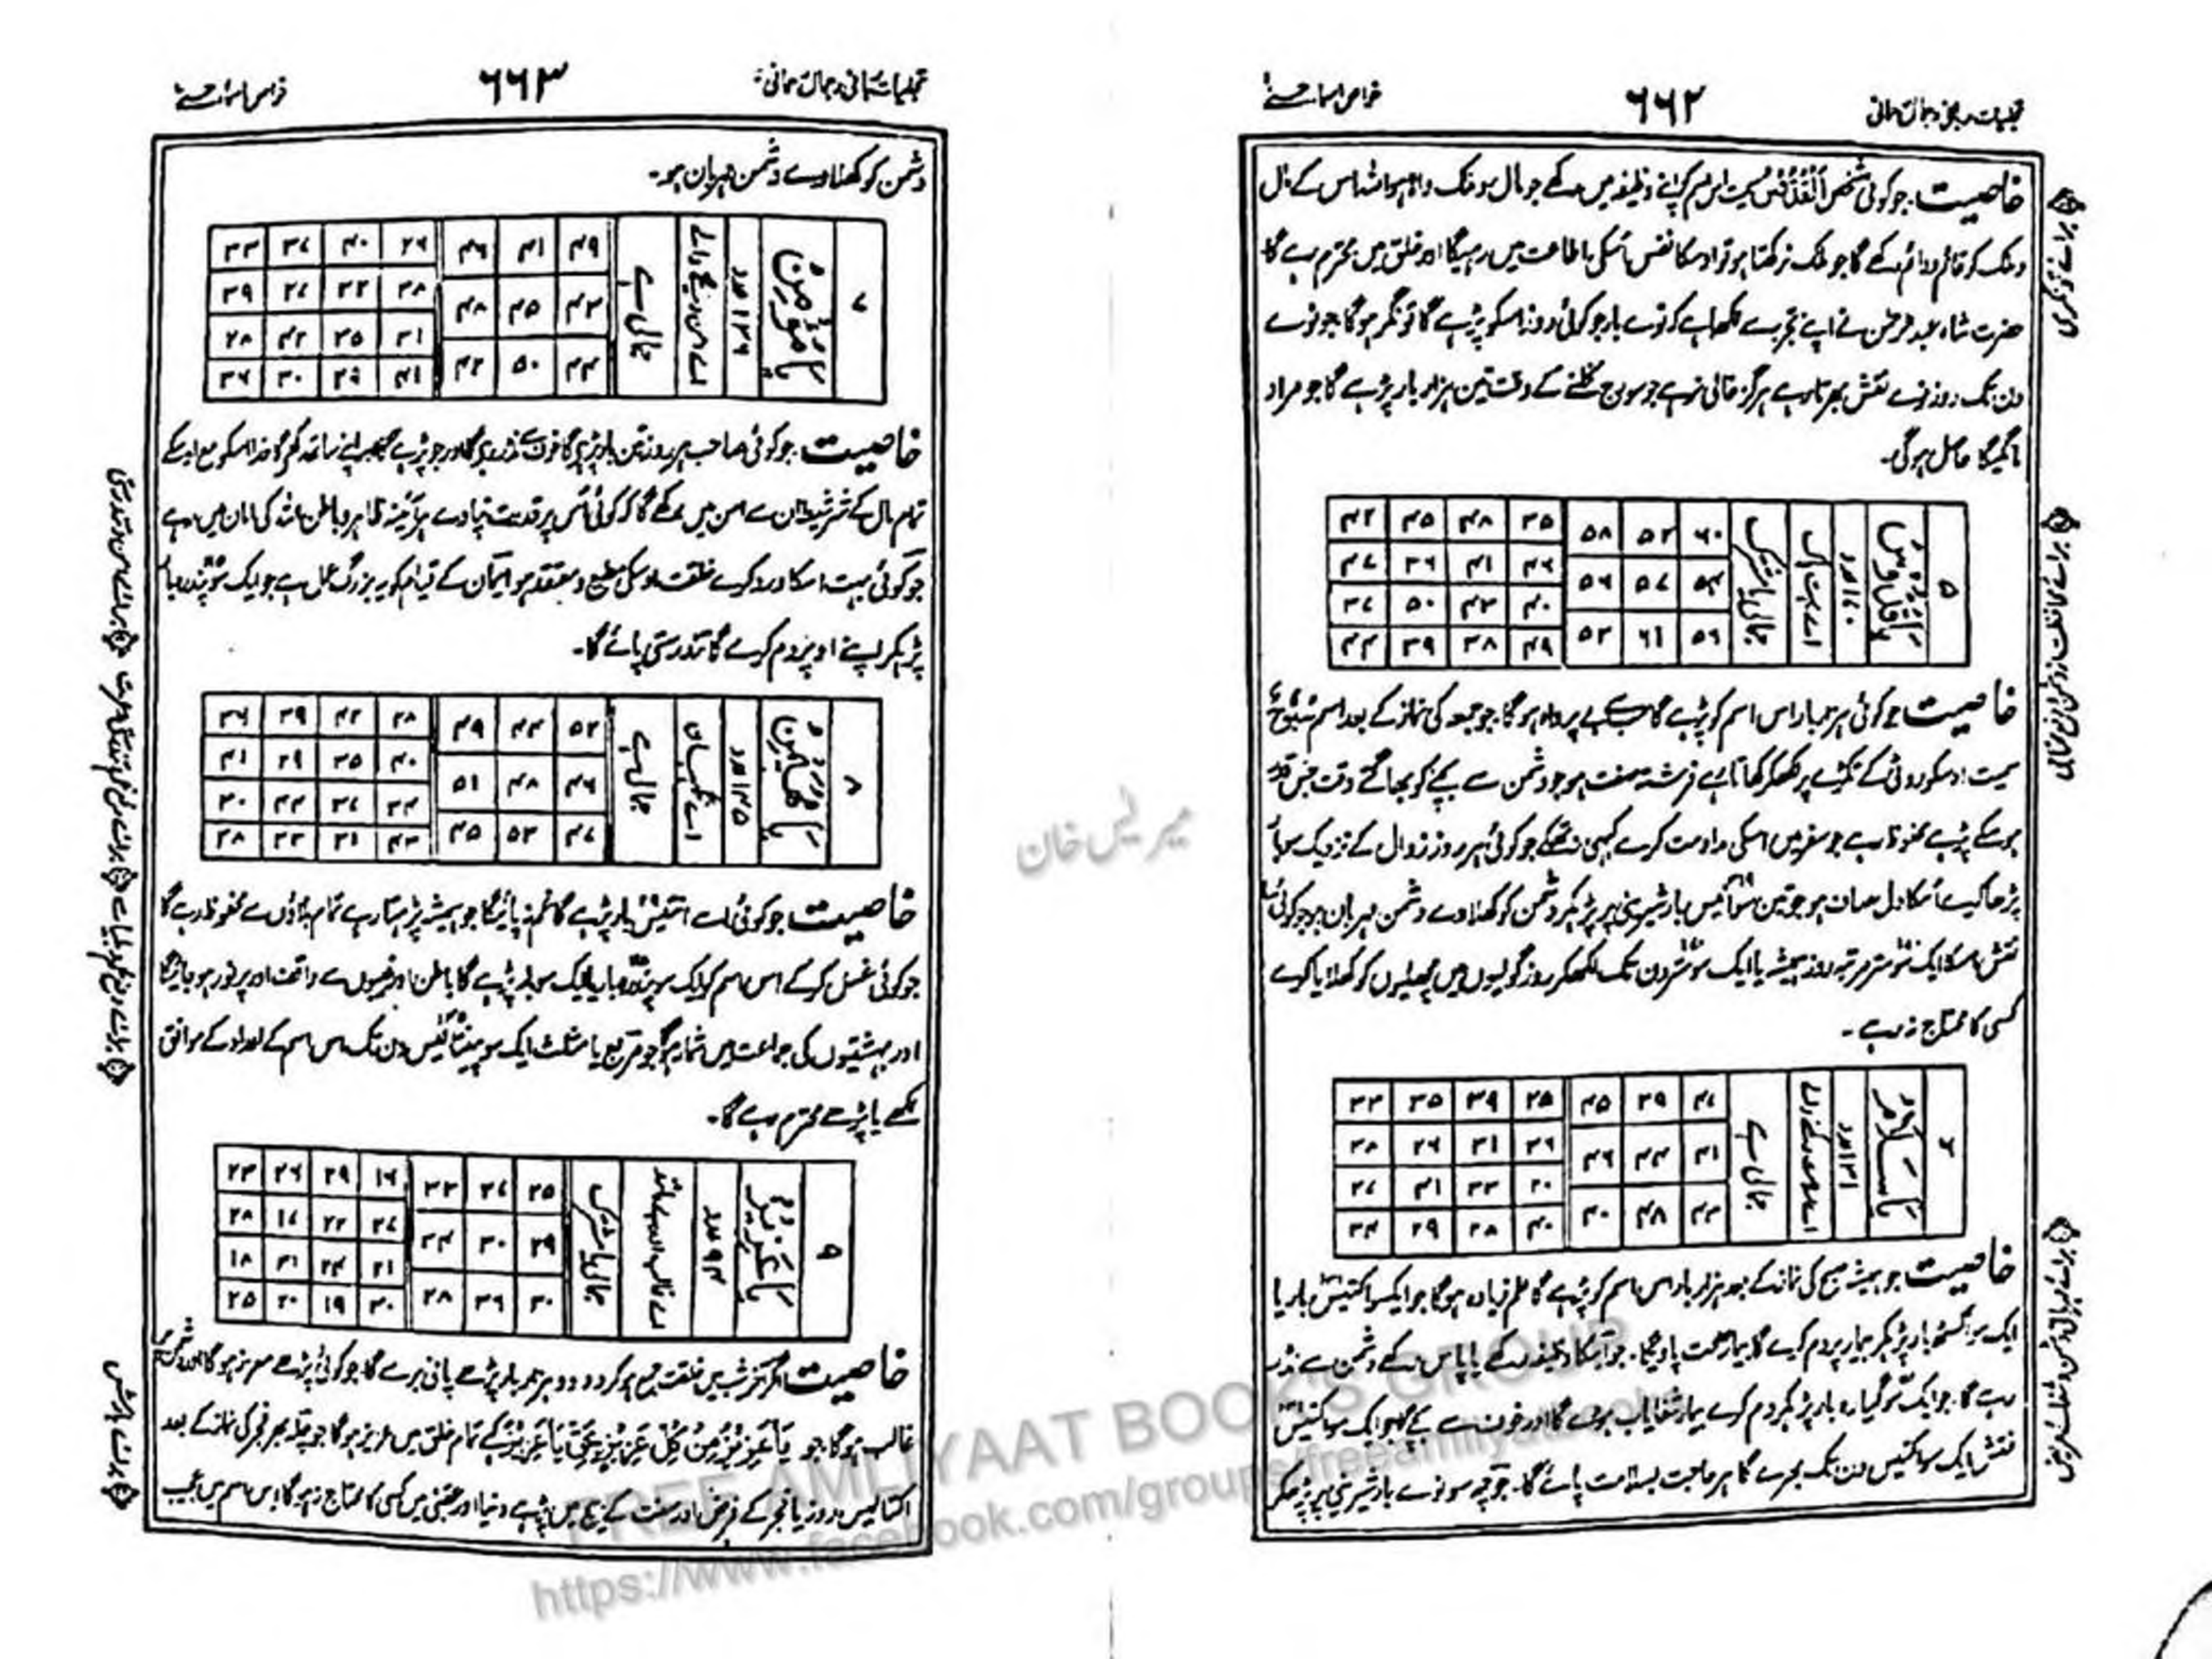 خواص اسمائے حسنےٰ
۶۶۲
خاصیت جو کوئی شخص اَلْقُدُّوْسُ سمیت اس اسم کو اپنے وظیفہ میں رکھے جو مال و ملک والا ہو اللہ اس کے مال
و ملک کو قائم و دائم رکھے گا جو ملک نہ رکھتا ہو تو اوسکا نفس اُسکی اطاعت میں رہیگا اور خلق میں محترم رہے گا
حضرت شاہ عبدالرحمٰن نے اپنے تجربے سے لکھا ہے کہ نوے بار جو کوئی روز اسکو پڑہے گا تونگر ہوگا جو نوے
دن تک روز نوے نقش بھرتا رہے ہرگز خالی نہ رہے جو سورج نکلنے کے وقت تین ہزار بار پڑہے گا جو مراد
مانگیگا حاصل ہوگی۔
۵
يَا قُدُّوْسُ
۱۷۰ عدد
اے بہت پاک
جمالی یا مشترک
۶۰ ۵۲ ۵۸
۵۴ ۵۷ ۵۹
۵۶ ۶۱ ۵۳
۳۵ ۴۸ ۴۵ ۴۲
۴۶ ۴۱ ۳۶ ۴۷
۴۰ ۴۳ ۵۰ ۳۷
۴۹ ۳۸ ۳۹ ۴۴
خاصیت جو کوئی ہزار بار اس اسم کو پڑہے گا سب سے بے پرواہ ہوگا۔ جو جمعہ کی نماز کے بعد اسم سُبُّوْحٌ
سمیت اوسکو روٹی کے ٹکڑے پر لکھکر کھاتا رہے فرشتہ صفت ہو جو دشمن سے بچنے کو بھاگتے وقت جس قدر
ہوسکے پڑہے محفوظ رہے جو سفر میں اسکی مداومت کرے کبھی نہ تھکے جو کوئی ہر روز زوال کے نزدیک سو بار
پڑھا کرے اُسکا دل صاف ہو جو تین سو اُنیس بار شیرینی پر پڑہکر دشمن کو کھلاوے دشمن مہربان ہو جو کوئی
نقش اسکا ایک سو ستر مرتبہ روز ہمیشہ یا ایک سو ستر دن تک لکھکر روز گولیوں میں مچھلیوں کو کھلایا کرے
کسی کا محتاج نہ رہے۔
يَا سَلَامُ
۱۳۱ عدد
جمالی ہے
۴۷ ۳۹ ۴۵
۴۱ ۴۴ ۴۶
۴۳ ۴۸ ۴۰
۲۵ ۳۹ ۳۵ ۳۲
۳۶ ۳۱ ۲۶ ۳۸
۳۰ ۳۳ ۴۱ ۲۷
۴۰ ۲۸ ۲۹ ۳۴
خاصیت جو ہمیشہ صبح کی نماز کے بعد ہزار بار اس اسم کو پڑہے گا علم زیادہ ہوگا جو ایک سو اکتیس بار یا
ایک سو اکسٹھ بار پڑہکر بیمار پر دم کرے گا بیمار صحت پاویگا۔ جو اسکا وظیفہ رکھے یا پاس رکھے دشمن سے نڈر
رہے گا۔ جو ایک سو گیارہ بار پڑہکر دم کرے بیمار شفایاب ہووے گا اور خوف سے بچے جو ایک سو اکتیس
نقش ایک سو اکتیس دن تک بھرے گا ہر حاجت بسلامت پائے گا۔ جو چھ سو نوے بار شیرینی پر پڑہکر
خواص اسمائے حسنےٰ
۶۶۳
دشمن کو کھلاوے دشمن مہربان ہو۔
۷
يَا مُؤْمِنُ
۱۳۶ عدد
جمالی ہے
۴۹ ۴۱ ۴۶
۴۳ ۴۵ ۴۸
۴۴ ۵۰ ۴۲
۲۶ ۴۰ ۳۷ ۳۳
۳۸ ۳۲ ۲۷ ۳۹
۳۱ ۳۵ ۴۲ ۲۸
۴۱ ۲۹ ۳۰ ۳۶
خاصیت جو کوئی صاحب ہر روز تین بار پڑہیگا خوف سے نڈر رہیگا اور جو پڑہے گا اپنے ساتھ رکھیگا خدا اسکو مع اوسکے
تمام مال کے شر شیطان سے امن میں رکھے گا کہ کوئی اُس پر قدرت نپاوے ہر آئینہ ظاہر و باطن اللہ کی امان میں رہے
جو کوئی بہت اسکا ورد کرے خلقت اوسکی مطیع و معتقد ہو ایمان کے قیام کو یہ بزرگ عمل ہے جو ایک سو پندرہ بار
پڑہکر اپنے اوپر دم کرے گا تندرستی پائے گا۔
۸
يَا مُهَيْمِنُ
۱۴۵ عدد
اے نگہبان
جمالی ہے
۵۲ ۴۴ ۴۹
۴۶ ۴۸ ۵۱
۴۷ ۵۳ ۴۵
۲۸ ۴۲ ۳۹ ۳۶
۴۰ ۳۵ ۲۹ ۴۱
۳۴ ۳۷ ۴۴ ۳۰
۴۳ ۳۱ ۳۳ ۳۸
خاصیت جو کوئی اسے اُنتیس بار پڑہے گا غم نہ پائیگا جو ہمیشہ پڑہتا رہے تمام بلاؤں سے محفوظ رہے گا
جو کوئی غسل کر کے اس اسم کو ایک سو پندرہ بار یا ایک سو بار پڑہے گا باطن اور غیبوں سے واقف اور پر نور ہو جائیگا
اور بہشتیوں کی جماعت میں شمار ہوگا جو مربع یا مثلث ایک سو پینتالیس دن تک اس اسم کے اعداد کے موافق
لکھے یا پڑہے محترم رہے گا۔
۹
يَا عَزِيْزُ
۹۴ عدد
جمالی یا مشترک
۳۵ ۲۷ ۳۲
۲۹ ۳۰ ۳۴
۳۰ ۳۶ ۲۸
۱۶ ۲۹ ۲۶ ۲۳
۲۷ ۲۲ ۱۷ ۲۸
۲۱ ۲۴ ۳۱ ۱۸
۳۰ ۱۹ ۲۰ ۲۵
خاصیت اگر آخر شب میں خلقت جمع ہوکر دو دو ہزار بار پڑہے پانی برسے گا جو کوئی پڑہے معزز ہوگا اور دشمن
غالب ہوگا جو يَا عَزِيْزُ مِنْ كُلِّ عَزِيْزٍ بِحَقِّ يَا عَزِيْزُ پڑہے تمام خلق میں عزیز ہوگا جو چلہ بھر فجر کی نماز کے بعد
اکتالیس روز یا فجر کے فرض اور سنت کے بیچ میں پڑہے دنیا اور عقبیٰ میں کسی کا محتاج نہ ہوگا اس اسم میں عجیب
برائے بارش
میر لیس خان
FREE AMLIYAAT BOOK'S GROUP
https://www.facebook.com/groups/freeamliyaatbooks